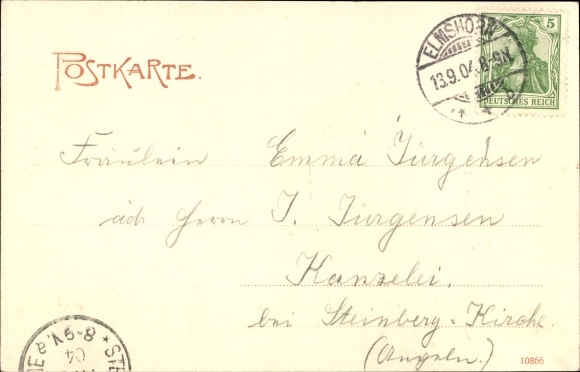 POSTKARTE.
ELMSHORN
13.9.04.8-9N.
5
DEUTSCHES REICH
Fräulein Emma Jürgensen
adr. Herrn J. Jürgensen
Kanzelei.
bei Steinberg=Kirche.
(Angeln.)
8-9N.
04
10866